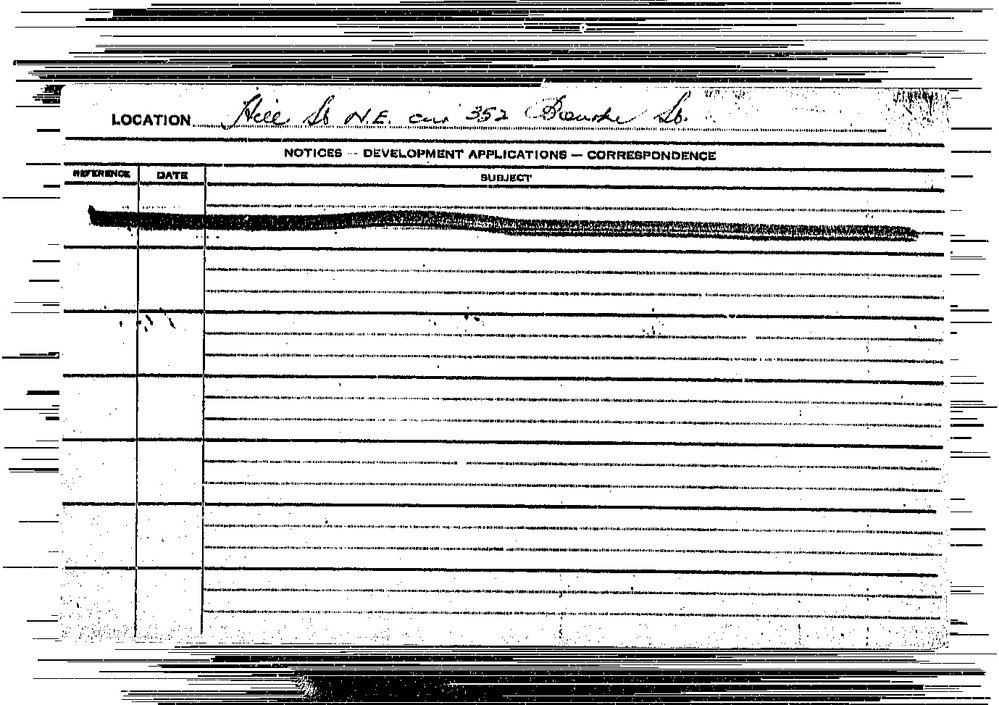 LOCATION Hill St N.E. cnr 352 Bourke St.
NOTICES -- DEVELOPMENT APPLICATIONS — CORRESPONDENCE
REFERENCE DATE SUBJECT